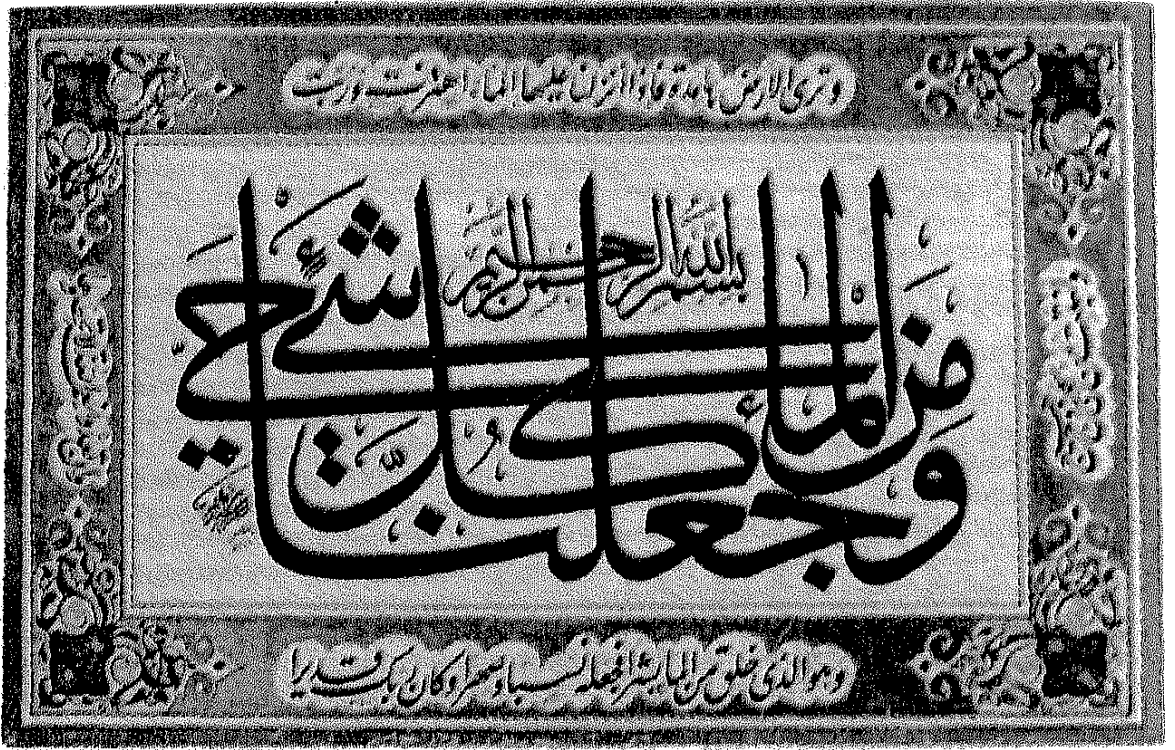 وترى الارض هامدة فاذا انزلنا عليها الماء اهتزت وربت
بسم الله الرحمن الرحيم
وجعلنا من الماء كل شيء حي
وهو الذي خلق من الماء بشرا فجعله نسبا وصهرا وكان ربك قديرا